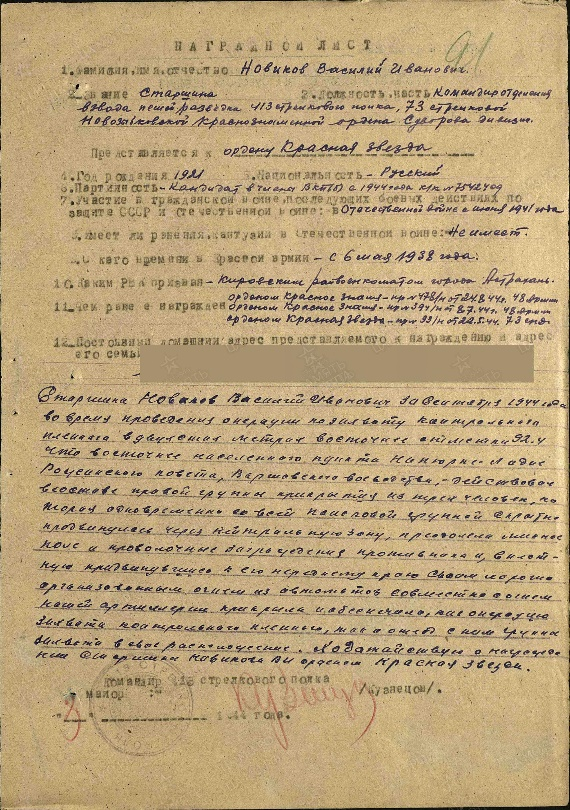 НАГРАДНОЙ ЛИСТ
91
1. Фамилия, имя, отчество Новиков Василий Иванович.
2. Звание Старшина 3. Должность, часть Командир отделения
взвода пешей разведки 413 стрелкового полка, 73 стрелковой
Новозыбковской Краснознаменной ордена Суворова дивизии.
Представляется к ордену Красная звезда
4. Год рождения 1921 5. Национальность - Русский
6. Партийность - Кандидат в члены ВКП(б) с 1944 года к/к № 7542409
7. Участие в гражданской войне, последующих боевых действиях по
защите СССР и отечественной войне: в Отечественной войне с июня 1941 года
8. Имеет ли ранения, контузии в отечественной войне: Не имеет.
9. С кего времени в Красной армии - с 6 мая 1938 года.
10. Каким РВК призван - Кировским райвоенкоматом города Астрахань.
11. Чем ранее награжден орденом Красное знамя - пр № 478/н от 24.8.44г. 48 армии
орденом Красное знамя - пр № 394/н от 8.7.44г. 48 армии
орденом Красная звезда - пр № 33/н от 22.5.44. 73 сд.
12. Постоянный домашний адрес представляемого к награждению и адрес
его семьи
Старшина Новиков Василий Иванович за Сентября 1944 года
во время проведения операции по захвату контрольного
пленного в двухстах метрах восточнее отметки 92.4
что восточнее населенного пункта
повета, Варшавского воеводства, - действовал
в составе правой группы прикрытия из трех человек, ко
торая одновременно со всей поисковой группой скрытно
продвинулась через нейтральную зону, преодолела минное
поле и проволочные заграждения противника и, вплот-
ную придвинувшись к его переднему краю своим хорошо
организованным огнем из автоматов совместно с огнем
нашей артиллерии прикрыла и обеспечила, как операцию
захвата контрольного пленного, так и отход с ним группы
захвата в свое расположение. Ходатайствую о награжде
нии Старшины Новикова В.И. орденом Красная звезда.
Командир 413 стрелкового полка
майор /Кузнецов/.
3 1944 года.